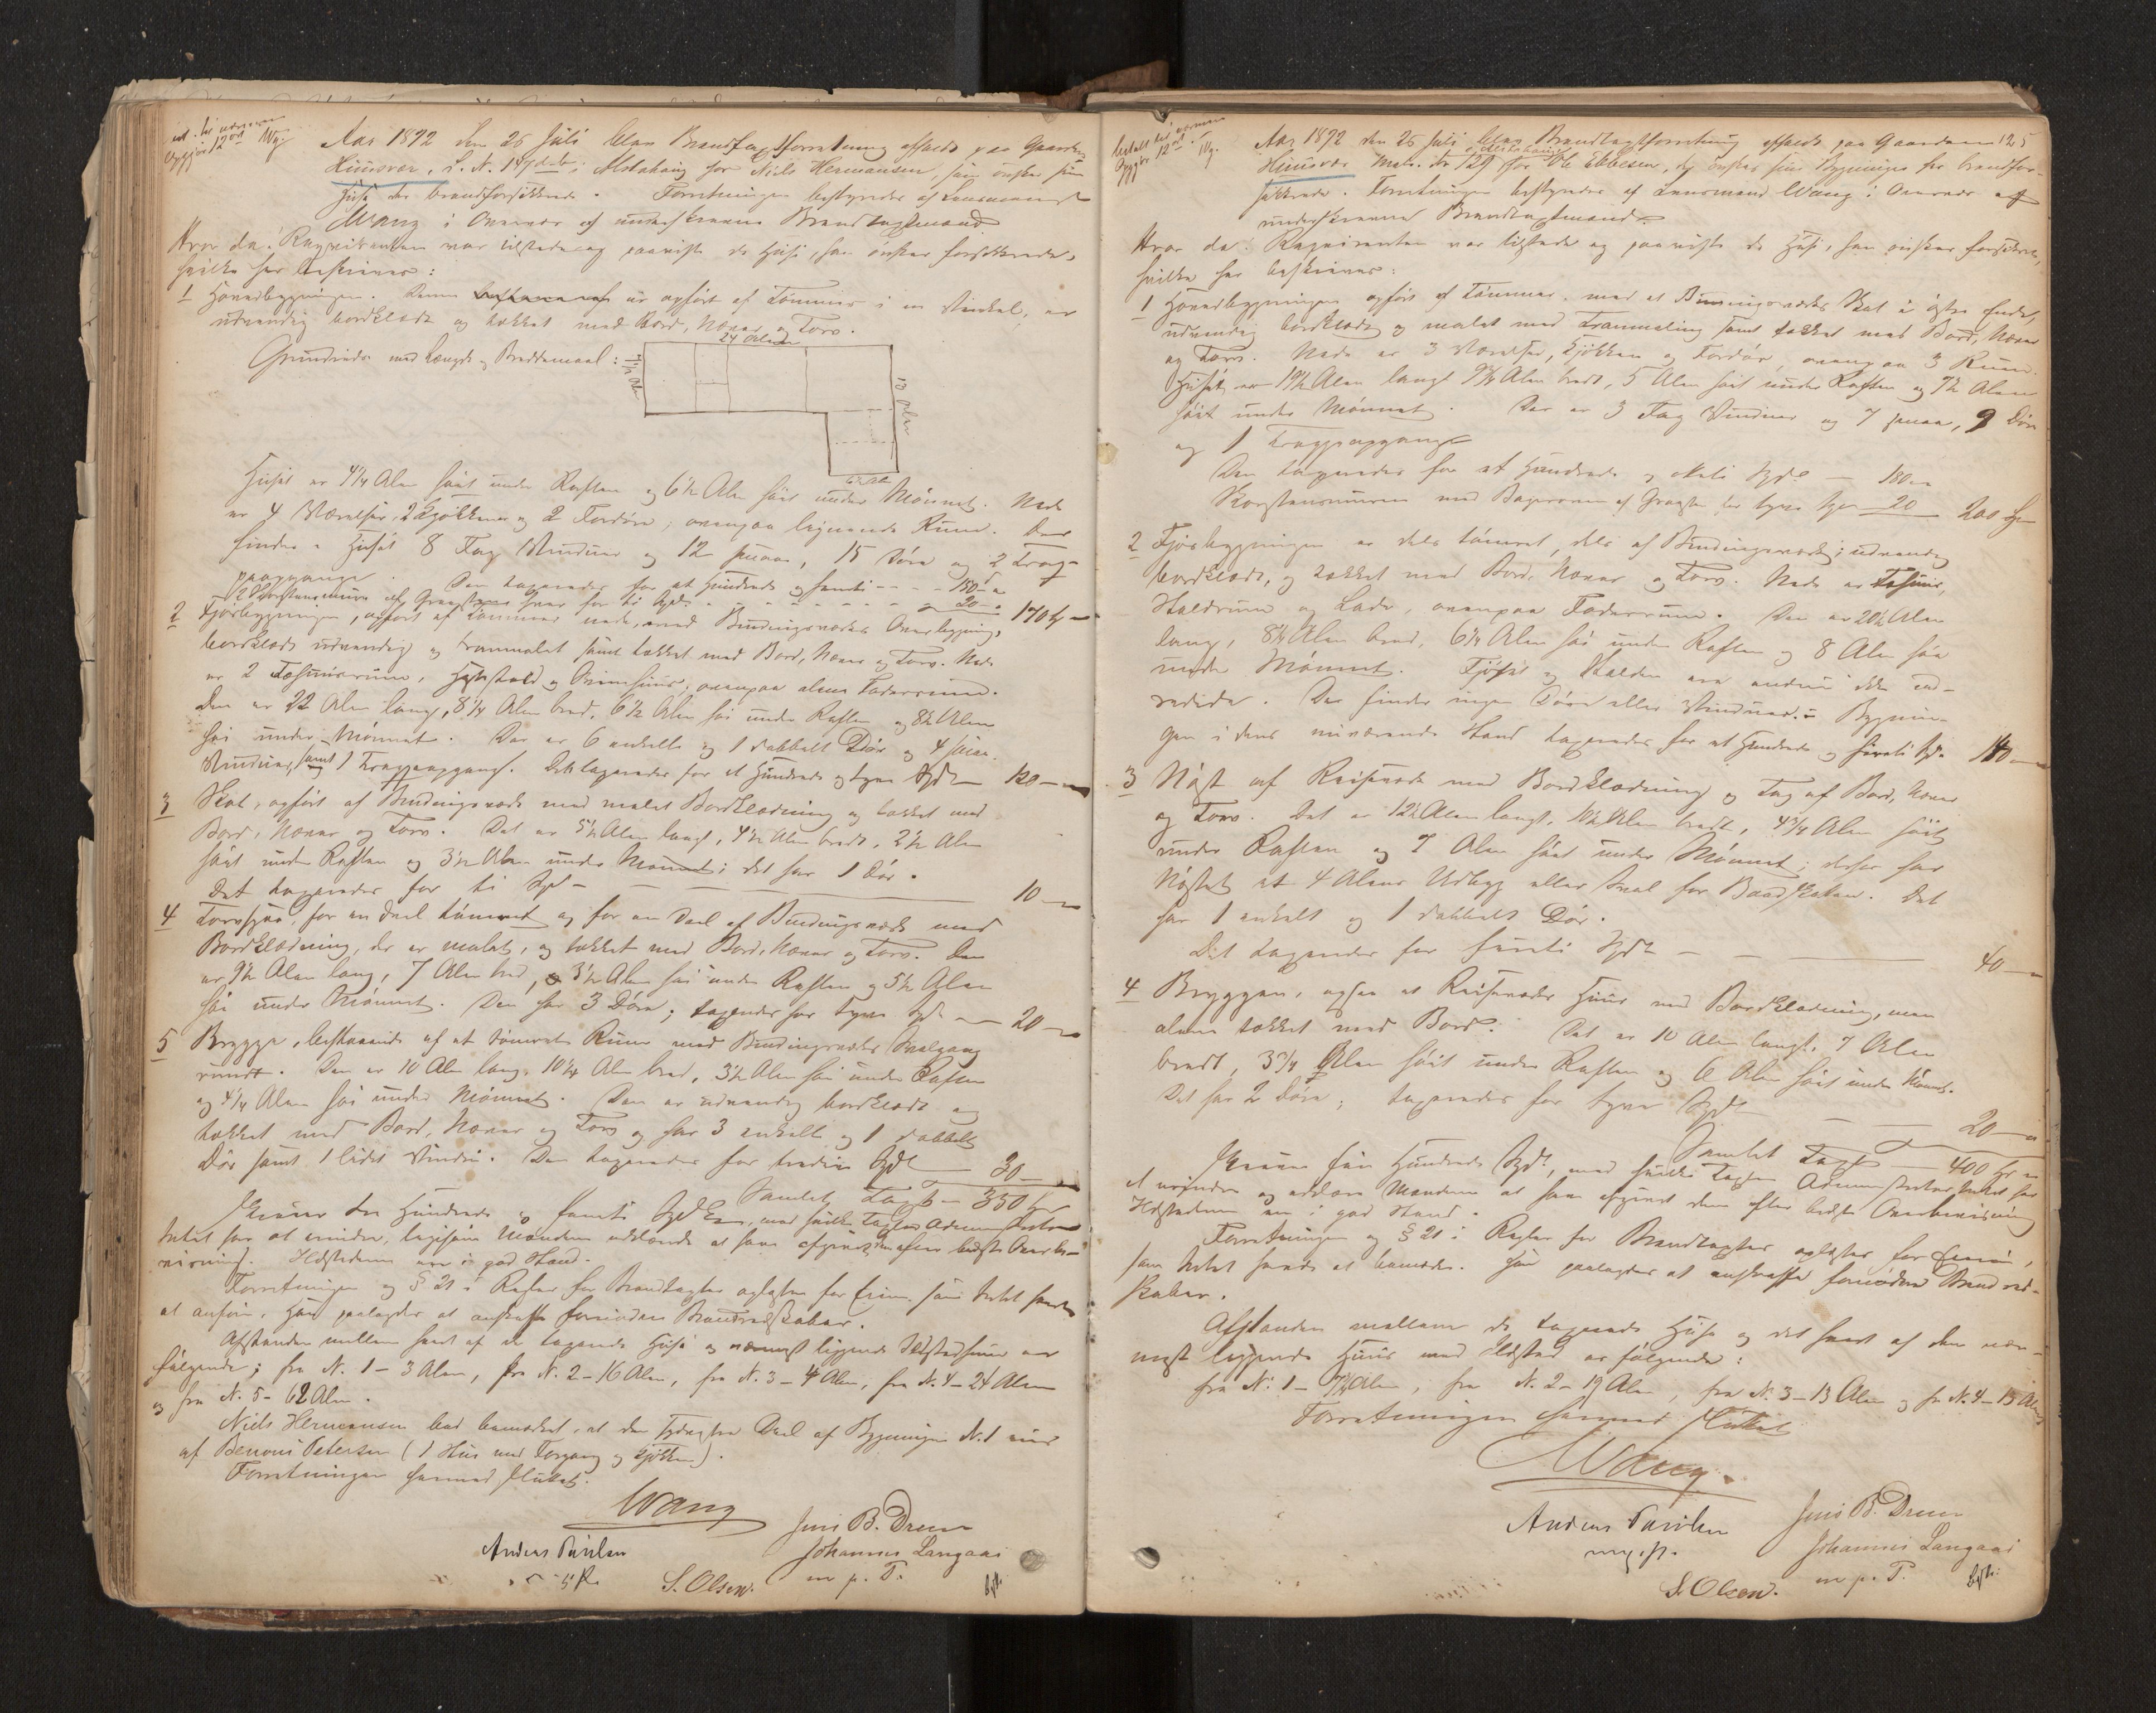 Aar 1872 den 26 Juli blev Brandtaxtforretning afholdt paa Gaarden
Huusvær, L. N. 129 i Alstahoug for Niels Hermansen, som ønsker sine
Huse der brandforsikrede. Forretningen bestyredes af Lensmand
Wang i Overvær af underskrevne Brandtaxtmænd
Hvor da: Requirenten var tilstede og paaviste de Huse, han ønsker forsikrede,
hvilke her beskrives:
1 Hovedbygningen. Denne er opført af Tømmer i en Vinkel, er
udvendig bordklædt og tækket med Bord, Næver og Torv.
Grundrids med Længde og Breddemaal:
24 Alen
12 Alen
6½ Al
Huset er 4¼ Alen høit under Raften og 6½ Alen høit under Mønnet. Nede
er 4 Værelser, 2 Kjøkkener og 2 Fordøre; ovenpaa lignende Rum. Der
findes i Huset 8 Fag Vinduer og 12 smaa, 15 Døre og 2 Trap-
peopgange. Den taxeredes for et Hundrede og femti - - - 150 -
2 Skorstensmure af Graasten hver for ti Spd. - - - 20 - 170 Spd
2 Fjøsbygningen, opført af Tømmer nede, med Bindingsværks Overbygning,
bordklædt udvendig og tranmalet samt tækket med Bord, Næver og Torv. Nede
er 2 Fæhuusrum, Hestestald og Tvinehuus, ovenpaa alene Foderrum.
Den er 22 Alen lang, 8¼ Alen bred, 6½ Alen høi under Raften og 8½ Alen
høi under Mønnet. Der er 6 enkelte og 1 dobbelt Dør og 4 smaa
Vinduer, samt 1 Trappeopgang. Det taxeredes for et Hundrede og tyve Spd 120 -
3 Skot, opført af Bindingsværk med malet Bordklædning og tækket med
Bord, Næver og Torv. Det er 5½ Alen langt, 4½ Alen bredt, 2½ Alen
høit under Raften og 3½ Alen under Mønnet; det har 1 Dør.
Det taxeredes for ti Spd - 10 -
4 Torvhuus, for en Deel tømret og for en Deel af Bindingsværk med
Bordklædning, der er malet, og tækket med Bord, Næver og Torv. Den
er 9½ Alen lang, 7 Alen bred, 3½ Alen høi under Raften og 5½ Alen
høi under Mønnet. Den har 3 Døre; taxeredes for tyve Spd - 20 -
5 Brygge, bestaaende af et tømret Rum med Bindingsværks Svalgang
rundt. Den er 10 Alen lang, 10¼ Alen bred, 3½ Alen høi under Raften
og 4¼ Alen høi under Mønnet. Den er udvendig bordklædt og
tækket med Bord, Næver og Torv og har 3 enkelte og 1 dobbelt
Dør samt 1 lidet Vindue. Den taxeredes for tredive Spd - 30 -
Samlet Taxt - 350 Spd
Skriver tre Hundrede og femti Spd, med hvilken Taxt Administrator
Intet har at erindre, ligesom Mændene erklærede at have afgivet den efter bedste Overbe-
viisning. Ildstederne ere i god Stand.
Forretningen og § 21 i Regler for Brandtaxter oplæstes for Eieren, som Intet havde
at anføre. Han paalagdes at anskaffe fornødne Brandredskaber.
Afstanden mellem hvert af de taxerede Huse og nærmest liggende Ildstedhuus er
følgende; fra N. 1 - 3 Alen, fra N. 2 - 16 Alen, fra N. 3 - 4 Alen, fra N. 4 - 24 Alen
og fra N. 5 - 62 Alen.
Niels Hermansen bad bemærket, at den sydvestre Deel af Bygningen N. 1 eies
af Benoni Petersen (1 Stue med Forgang og Kjøkken).
Forretningen hermed sluttet.
Wang
Jens B. Dreier
Johannes Langaas
m. p. P.
S. Olsen.
Aar 1872 den 26 Juli blev Brandtaxtforretning afholdt paa Gaarden 125
Huusvær Matr. Nr 129 i Alstahoug for Ole Ebbesen, der ønsker sine Bygninger her brandfor-
sikrede. Forretningen bestyredes af Lensmand Wang i Overvær af
underskrevne Brandtaxtmænd.
Hvor da: Requirenten var tilstede og paaviste de Huse, han ønsker forsikrede,
hvilke her beskrives:
1 Hovedbygningen opført af Tømmer, med et Bindingsværks Skot i østre Ende,
udvendig bordklædt og malet med Tranmaling samt tækket med Bord, Næver
og Torv. Nede er 3 Værelser, Kjøkken og Fordør, ovenpaa 3 Rum.
Huset er 19½ Alen langt 9¾ Alen bredt, 5 Alen høit under Raften og 7½ Alen
høit under Mønnet. Der er 3 Fag Vinduer og 7 smaa, 9 Døre
og 1 Trappeopgang
Den taxeredes for et Hundrede og otteti Spd - 180 -
Skorstensmuren med Bagerovn af Graasten for tyve Spd 20 200 Spd
2 Fjøsbygningen er dels tømret, dels af Bindingsværk; udvendig
bordklædt, og tækket med Bord, Næver og Torv. Nede er Fæhuus,
Staldrum og Lade, ovenpaa Foderrum. Den er 20½ Alen
lang, 8¾ Alen bred, 6¼ Alen høi under Raften og 8 Alen høi
under Mønnet. Fjøset og Stalden ere endnu ikke ind-
redede. Der findes ingen Døre eller Vinduer. - Bygnin-
gen i dens nuværende Stand taxeredes for et Hundrede og førreti Spd. 140 -
3 Nøst af Reisværk med Bordklædning og Tag af Bord, Næver
og Torv. Det er 12½ Alen langt, 10½ Alen bredt, 4¾ Alen høit
under Raften og 7 Alen høit under Mønnet; derfor har
Nøstet et 4 Alens Udbyg eller Sval for Baadskaten. Det
har 1 enkelt og 1 dobbelt Dør.
Det taxeredes for førreti Spd - - 40 -
4 Bryggen, ogsaa et Reisværks Huus med Bordklædning, men
alene tækket med Bord. Det er 10 Alen langt, 7 Alen
bredt, 3¾ Alen høit under Raften og 6 Alen høit under Mønnet.
Det har 2 Døre; taxeredes for tyve Spd - - 20 -
Samlet Taxt - 400 Spd
Skriver fire Hundrede Spd, med hvilken Taxt Administrator Intet har
at erindre og erklærede Mændene at have afgivet den efter bedste Overbeviisning
Ildstederne ere i god Stand.
Forretningen og § 21 i Regler for Brandtaxter oplæstes for Eieren,
som Intet havde at bemærke. Han paalagdes at anskaffe fornødne Brandred-
skaber.
Afstanden mellem de taxerede Huse og det hvert af dem nær-
mest liggende Huus med Ildsted er følgende:
fra N. 1 - 7½ Alen, fra N. 2 - 19 Alen, fra N. 3 - 13 Alen og fra N. 4 - 15 Alen
Forretningen hermed sluttet
Wang.
Jens B. Dreier
Johannes Langaas
m. p. P.
S. Olsen.